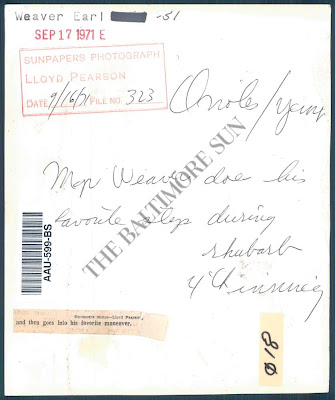 Weaver Earl -51
SEP 17 1971 E
SUNPAPERS PHOTOGRAPH
LLOYD PEARSON
DATE 9/16/71 FILE NO. 323
Orioles/
Mgr Weaver does his
favorite step during
rhubarb
THE BALTIMORE SUN
AAU-599-BS
Sunpapers photos—Lloyd Pearson
and then goes into his favorite maneuver.
018